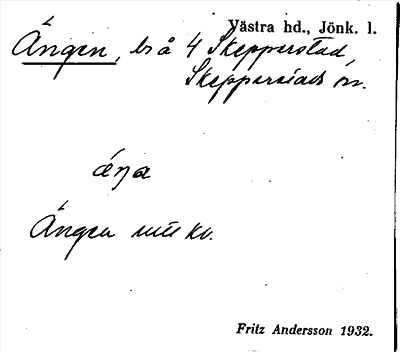 Västra hd., Jönk. l.
Ängen, ls å 4 Skepperstad,
Skepperstads sn.
áŋa
Ängen kv.
Fritz Andersson 1932.